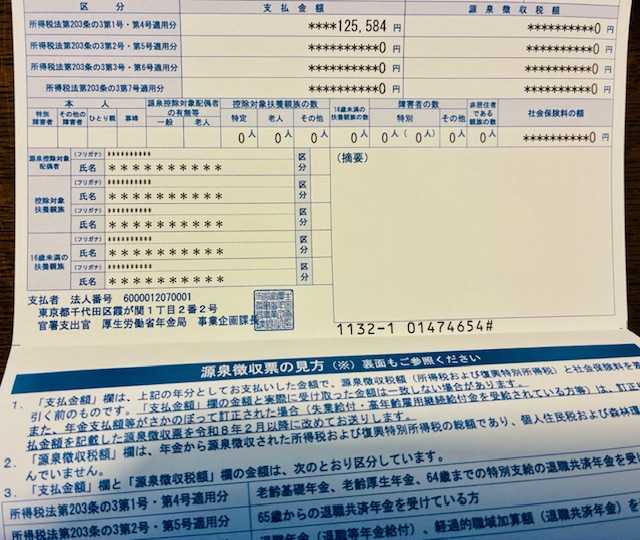 区分 支払金額 源泉徴収税額
所得税法第203条の3第1号・第4号適用分 ****125,584 円 **********0 円
所得税法第203条の3第2号・第5号適用分 **********0 円 **********0 円
所得税法第203条の3第3号・第6号適用分 **********0 円 **********0 円
所得税法第203条の3第7号適用分 **********0 円 **********0 円
本人 源泉控除対象配偶者の有無等 控除対象扶養親族の数 16歳未満の扶養親族の数 障害者の数 非居住者である親族の数 社会保険料の額
特別障害者 その他の障害者 ひとり親 寡婦 一般 老人 特定 老人 その他 特別 その他
0人 0人 0人 0人 0人(0人) 0人 0人 **********0 円
源泉控除対象配偶者 (フリガナ) ********** 区分 (摘要)
氏名 **********
控除対象扶養親族 (フリガナ) ********** 区分
氏名 **********
(フリガナ) ********** 区分
氏名 **********
16歳未満の扶養親族 (フリガナ) ********** 区分
氏名 **********
(フリガナ) ********** 区分
氏名 **********
支払者 法人番号 6000012070001
東京都千代田区霞が関1丁目2番2号
官署支出官 厚生労働省年金局 事業企画課長
1132-1 01474654#
源泉徴収票の見方(※)裏面もご参照ください
1.「支払金額」欄は、上記の年分としてお支払いした金額で、源泉徴収税額(所得税および復興特別所得税)と社会保険料を差
引く前のものです。「支払金額」欄の金額と実際に受け取った金額は一致しない場合があります。
また、年金支払額等がさかのぼって訂正された場合(失業給付・高年齢雇用継続給付金を受給されている方等)は、訂正
払金額を記載した源泉徴収票を令和8年2月以降に改めてお送りします。
2.「源泉徴収税額」欄は、年金から源泉徴収された所得税および復興特別所得税の総額であり、個人住民税および森林環
んでいません。
3.「支払金額」欄と「源泉徴収税額」欄の金額は、次のとおり区分しています。
所得税法第203条の3第1号・第4号適用分 老齢基礎年金、老齢厚生年金、64歳までの特別支給の退職共済年金を受け
所得税法第203条の3第2号・第5号適用分 65歳からの退職共済年金を受けている方
退職年金(退職等年金給付)、経過的職域加算額(退職共済年金)を